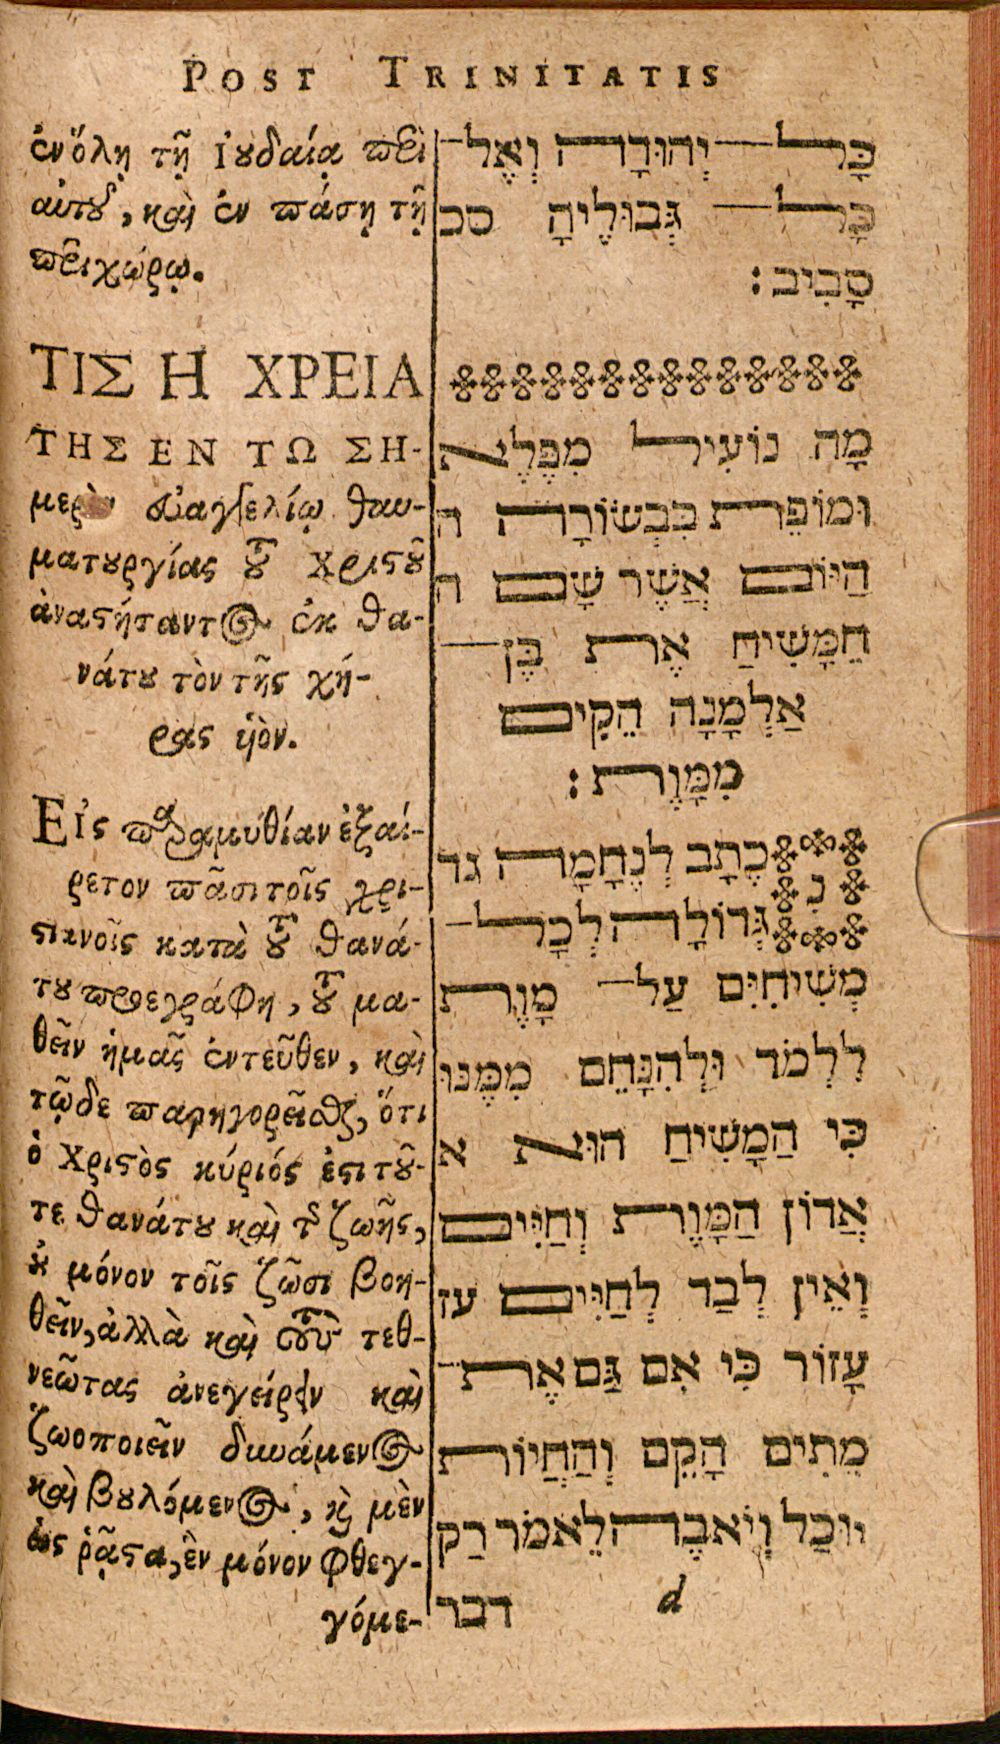 POST TRINITATIS
ἐν ὅλῃ τῇ Ἰουδαίᾳ περὶ
αὐτοῦ, καὶ ἐν πάσῃ τῇ
περιχώρῳ.
ΤΙΣ Η ΧΡΕΙΑ
ΤΗΣ ΕΝ ΤΩ ΣΗ-
μερὸν εὐαγγελίῳ θαυ-
ματουργίας τοῦ Χριστοῦ
ἀναστήταντος ἐκ θα-
νάτου τὸν τῆς χή-
ρας ὑὸν.
Εἰς παραμυθίαν ἐξαί-
ρετον πᾶσι τοῖς χρι-
στιανοῖς κατὰ τοῦ θανά-
του προεγράφη, τοῦ μα-
θεῖν ἡμᾶς ἐντεῦθεν, καὶ
τῷδε παρηγορεῖσθαι, ὅτι
ὁ Χριστὸς κύριός ἐστι τοῦ-
τε θανάτου καὶ τῆς ζωῆς,
οὐ μόνον τοῖς ζῶσι βοη-
θεῖν, ἀλλὰ καὶ τοὺς τεθ-
νεῶτας ἀνεγείρειν καὶ
ζωοποιεῖν δυνάμενος
καὶ βουλόμενος, καὶ μὲν
ὡς ῥᾷστα, ἓν μόνον φθεγ-
γόμε-
כָּל יְהוּדָה וְאֶל־
כָּל־ גְּבוּלֶיהָ סכ
סָבִיב׃
מָה נוֹעִיל מִפֶּלֶא
וּמוֹפֵת בִּבְשׂוֹרָה ה
הַיּוֹם אֲשֶׁר שָׁם ה
הֵמָּשִׁיחַ אֶת בֶּן־
אַלְמָנָה הֵקִים
מִמָּוֶת׃
נִ כְתָב לְנֶחָמָה גד
גְּדוֹלָה לְכָל־
מְשִׁיחִיִּם עַל־ מָוֶת
לִלְמֹד וּלְהִנָּחֵם מִמֶּנּוּ
כִּי הַמָּשִׁיחַ הוּא א
אֲדוֹן הַמָּוֶת וְחַיִּים
וְאֵין לְבַד לְחַיִּים עז
עָזוֹר כִּי אִם גַּם אֶת־
מִתִים הָקֵם וְהַחֲיוֹת
יוּכַל וְיֹאבֶה לֵאמֹר רַק
d דבר